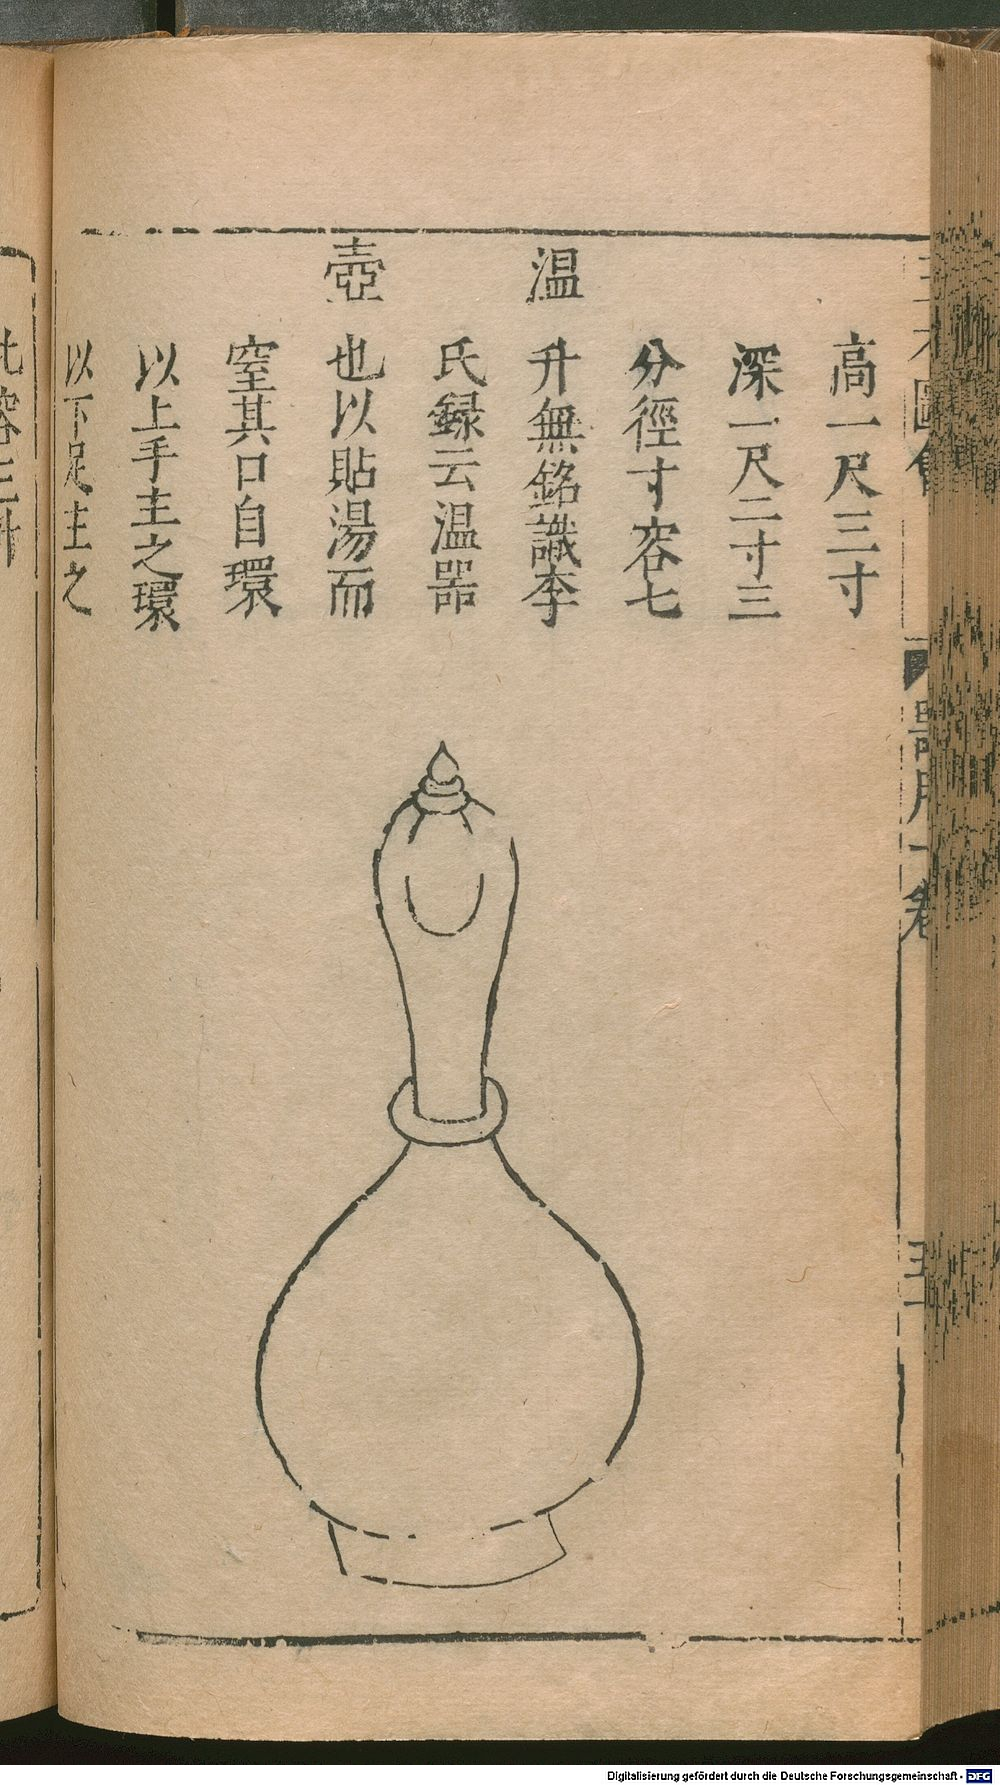 高一尺三寸
深一尺二寸三
分徑寸容七
升無銘識李
氏録云温器
也以貼湯而
窒其口自環
以上手主之環
以下足主之
温
壺
器用一卷
Digitalisierung gefördert durch die Deutsche Forschungsgemeinschaft - DFG